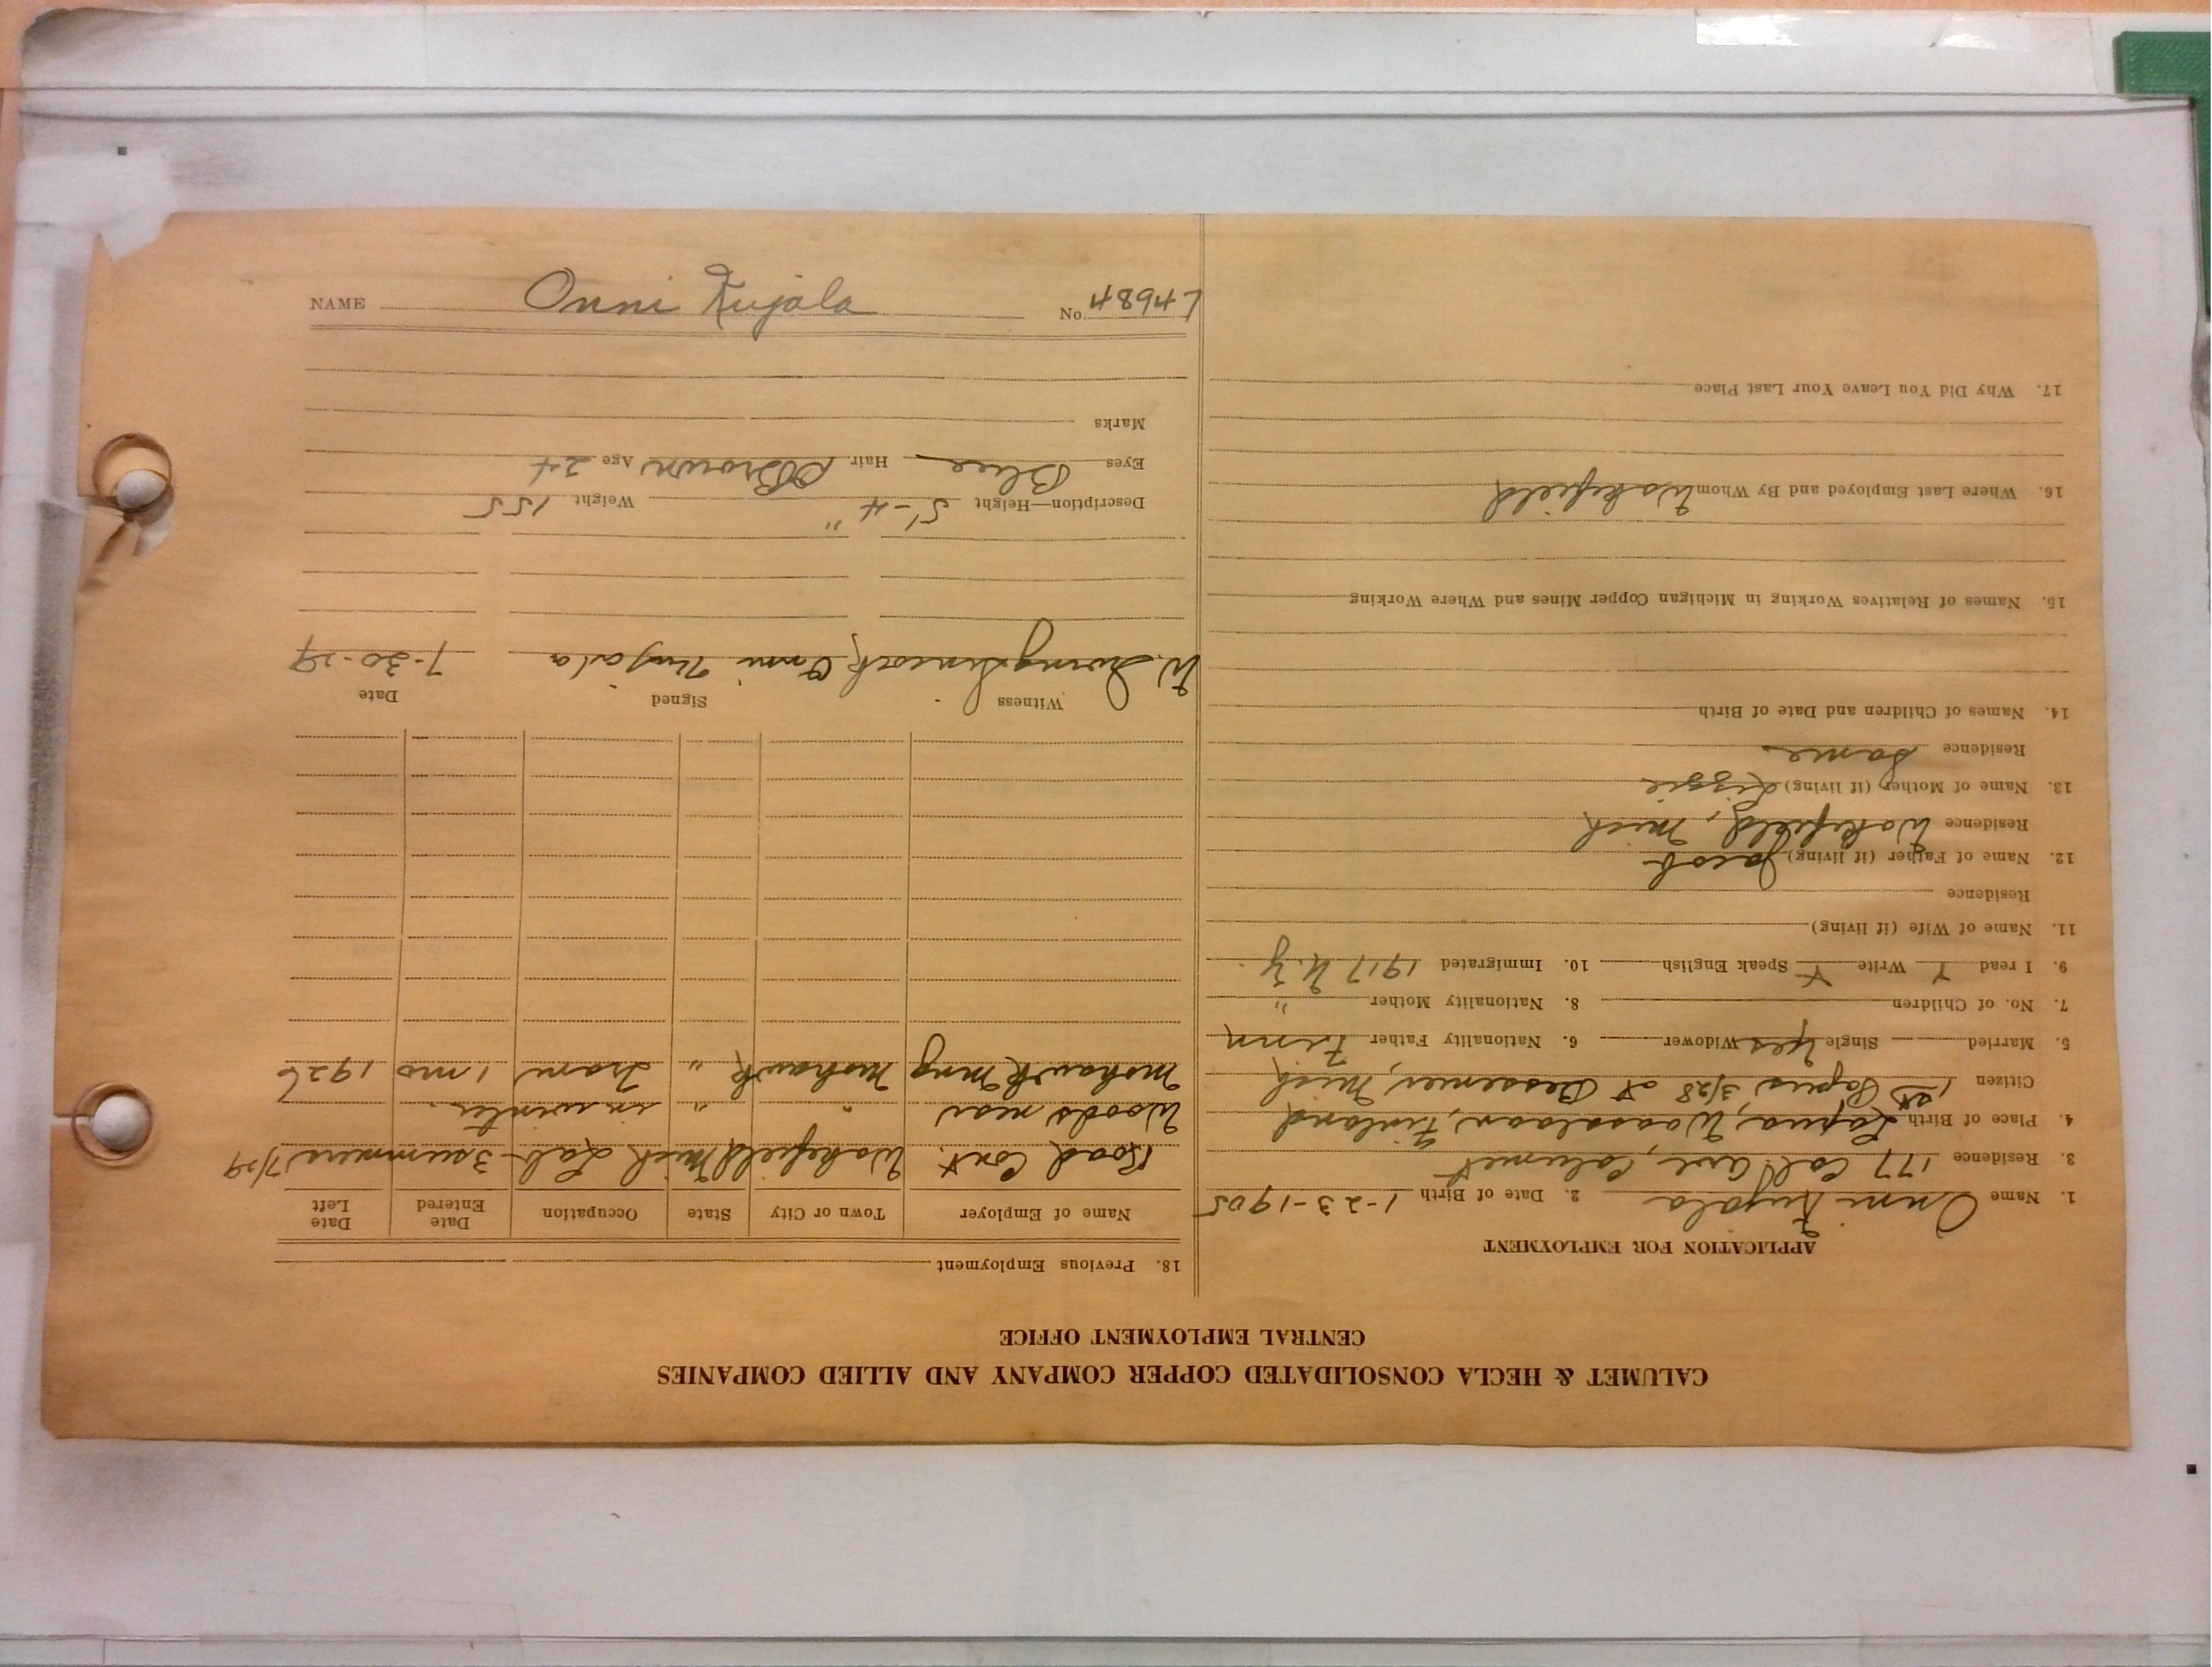 CALUMET & HECLA CONSOLIDATED COPPER COMPANY AND ALLIED COMPANIES
CENTRAL EMPLOYMENT OFFICE
APPLICATION FOR EMPLOYMENT
1. Name Onni Kujala 2. Date of Birth 1-23-1905
3. Residence 177 Cal. Ave, Calumet
4. Place of Birth Lapua, Waasalaani, Finland
Citizen 1st Papers 3/28 at Bessemer, Mich
5. Married Single Yes Widower 6. Nationality Father Finn
7. No. of Children 8. Nationality Mother "
9. I read Y Write Y Speak English 10. Immigrated 1917 N.Y.
11. Name of Wife (if living)
Residence
12. Name of Father (if living) Jacob
Residence Wakefield, Mich
13. Name of Mother (if living) Lizzie
Residence Same
14. Names of Children and Date of Birth
15. Names of Relatives Working in Michigan Copper Mines and Where Working
16. Where Last Employed and By Whom Wakefield
17. Why Did You Leave Your Last Place
18. Previous Employment
Name of Employer Town or City State Occupation Date Entered Date Left
Road Cont. Wakefield Mich Lab 3 summers 7/29
Woods near " " in winter.
Mohawk Mng Mohawk " Tram 1 mo 1926
Witness Signed Date
W. Onni Kujala 7-30-29
Description—Height 5'-4" Weight 155
Eyes Blue Hair Brown Age 24
Marks
NAME Onni Kujala No. L4684